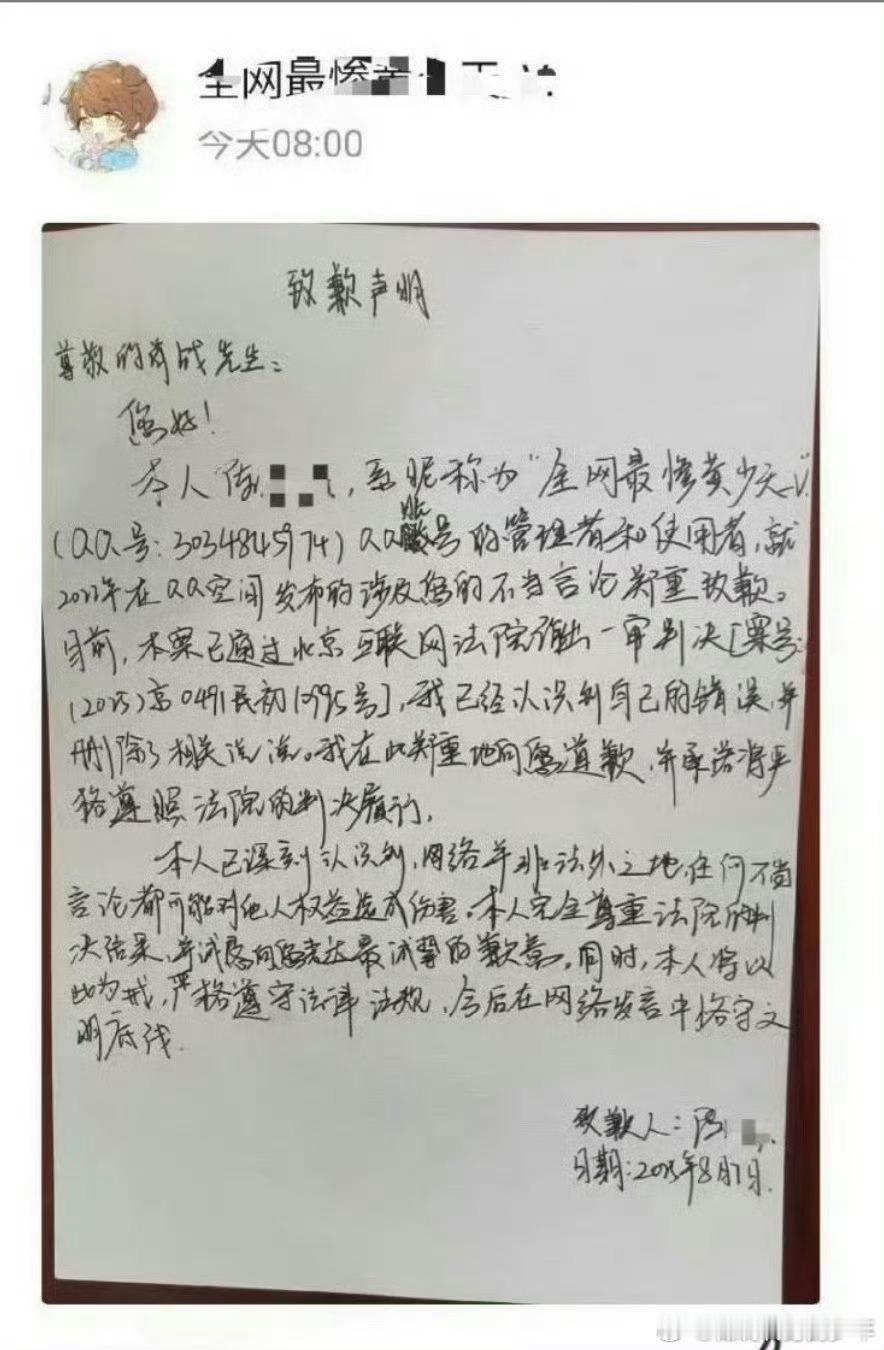 全网最惨
今天08:00
致歉声明
尊敬的肖战先生:
您好!
本人陈,系昵称为"全网最惨黄少天_V"
(QQ号:3034845974)QQ账号的管理者和使用者,就
2022年在QQ空间发布的涉及您的不当言论郑重致歉。
目前,本案已通过北京互联网法院作出一审判决[案号:
(2025)京0491民初10995号],我已经认识到自己的错误,并
删除了相关说说。我在此郑重地向您道歉,并承诺将严
格遵照法院的判决履行。
本人已深刻认识到,网络并非法外之地,任何不当
言论都可能对他人权益造成伤害。本人完全尊重法院的判
决结果,并诚恳向您表达最诚挚的歉意。同时,本人将以
此为戒,严格遵守法律法规,今后在网络发言中恪守文
明底线.
致歉人:陈
日期:2025年8月7日.